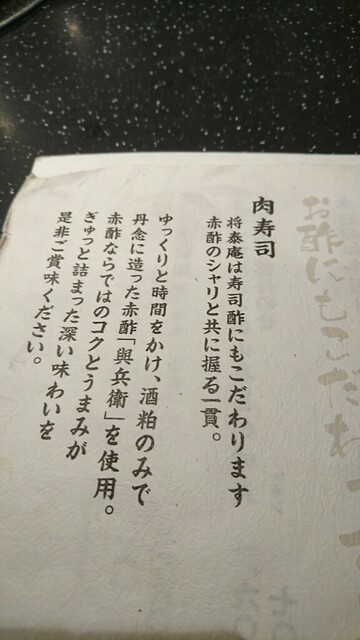 お酢にもこだわ
肉寿司
将泰庵は寿司酢にもこだわります
赤酢のシャリと共に握る一貫。
ゆっくりと時間をかけ、酒粕のみで
丹念に造った赤酢「與兵衛」を使用。
赤酢ならではのコクとうまみが
ぎゅっと詰まった深い味わいを
是非ご賞味ください。